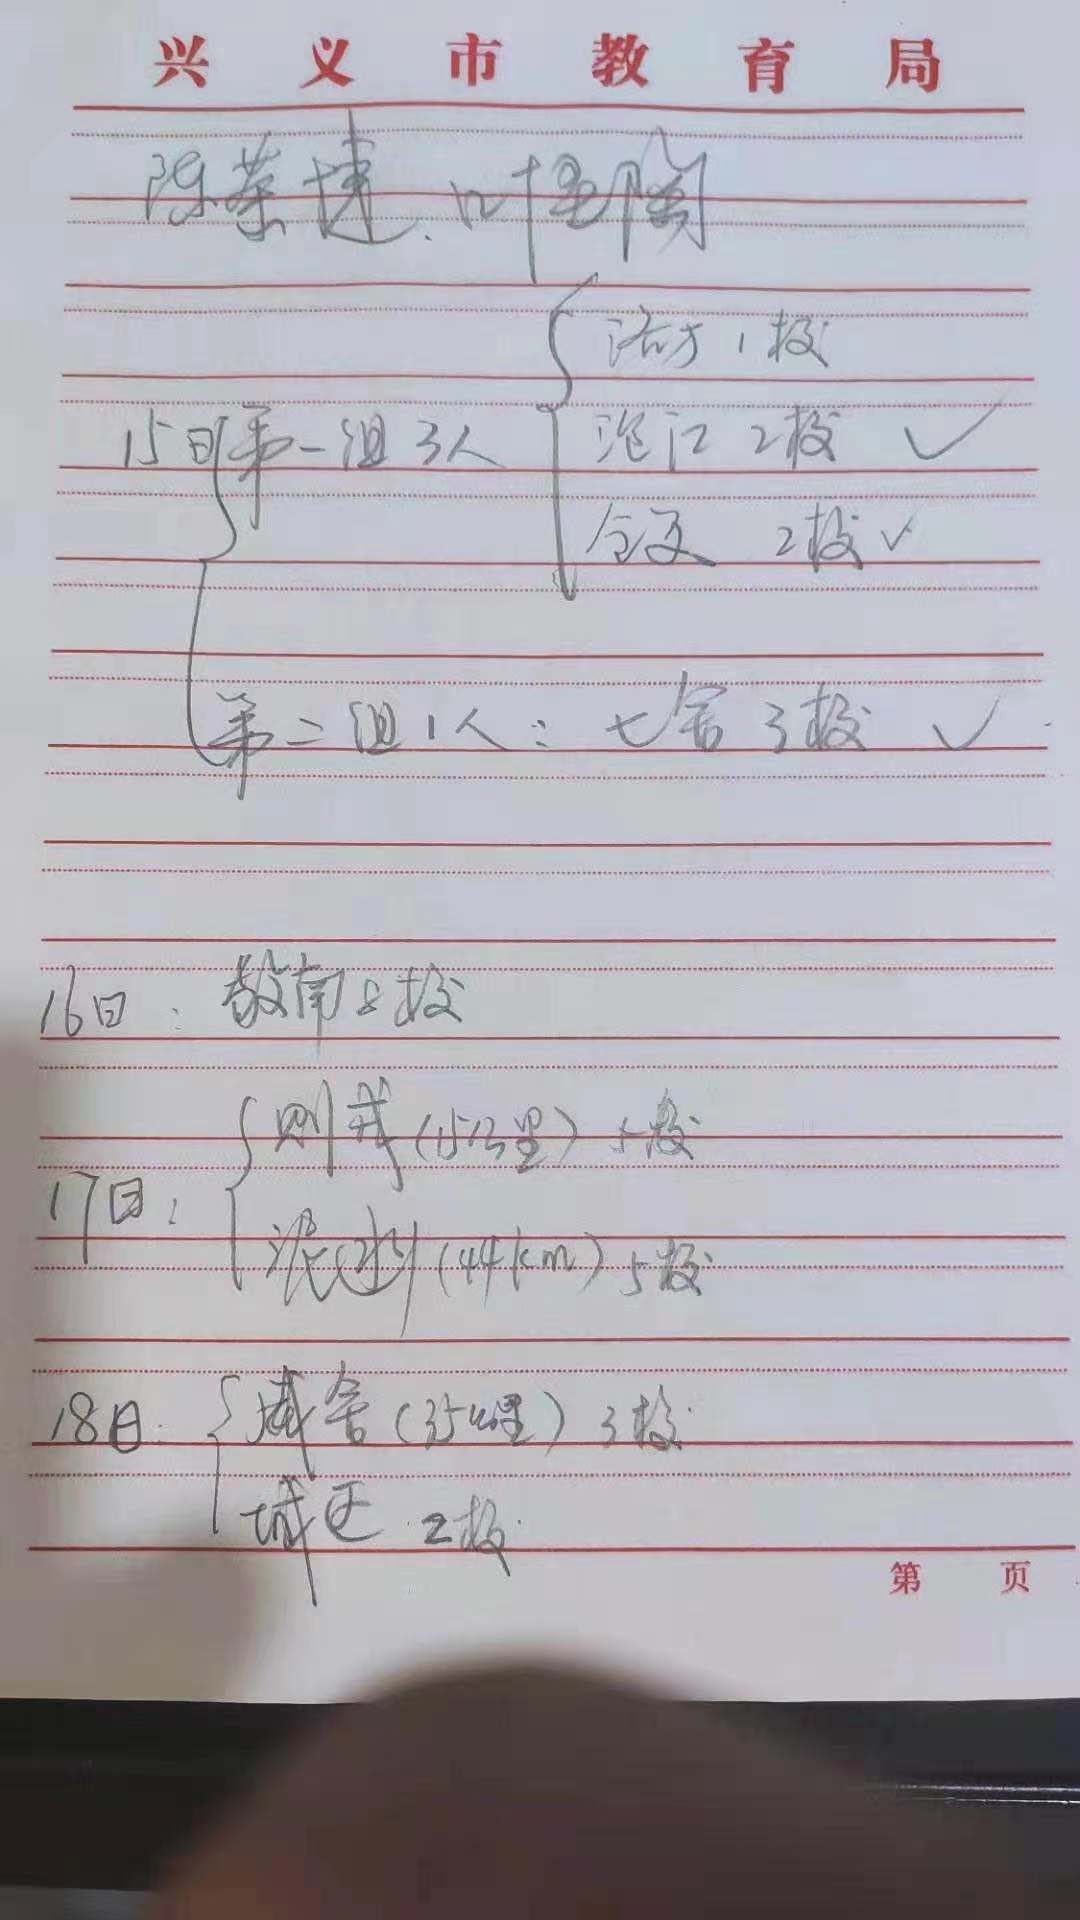 兴义市教育局
陈荣博、叶
1校
15日 第一组3人 沧江2校 ✓
2校 ✓
第二组1人：七舍3校 ✓
16日：敬南8校
17日：则戎（15公里）5校
泥凼（44km）5校
18日：威舍（35公里）3校
城区 2校
第 页